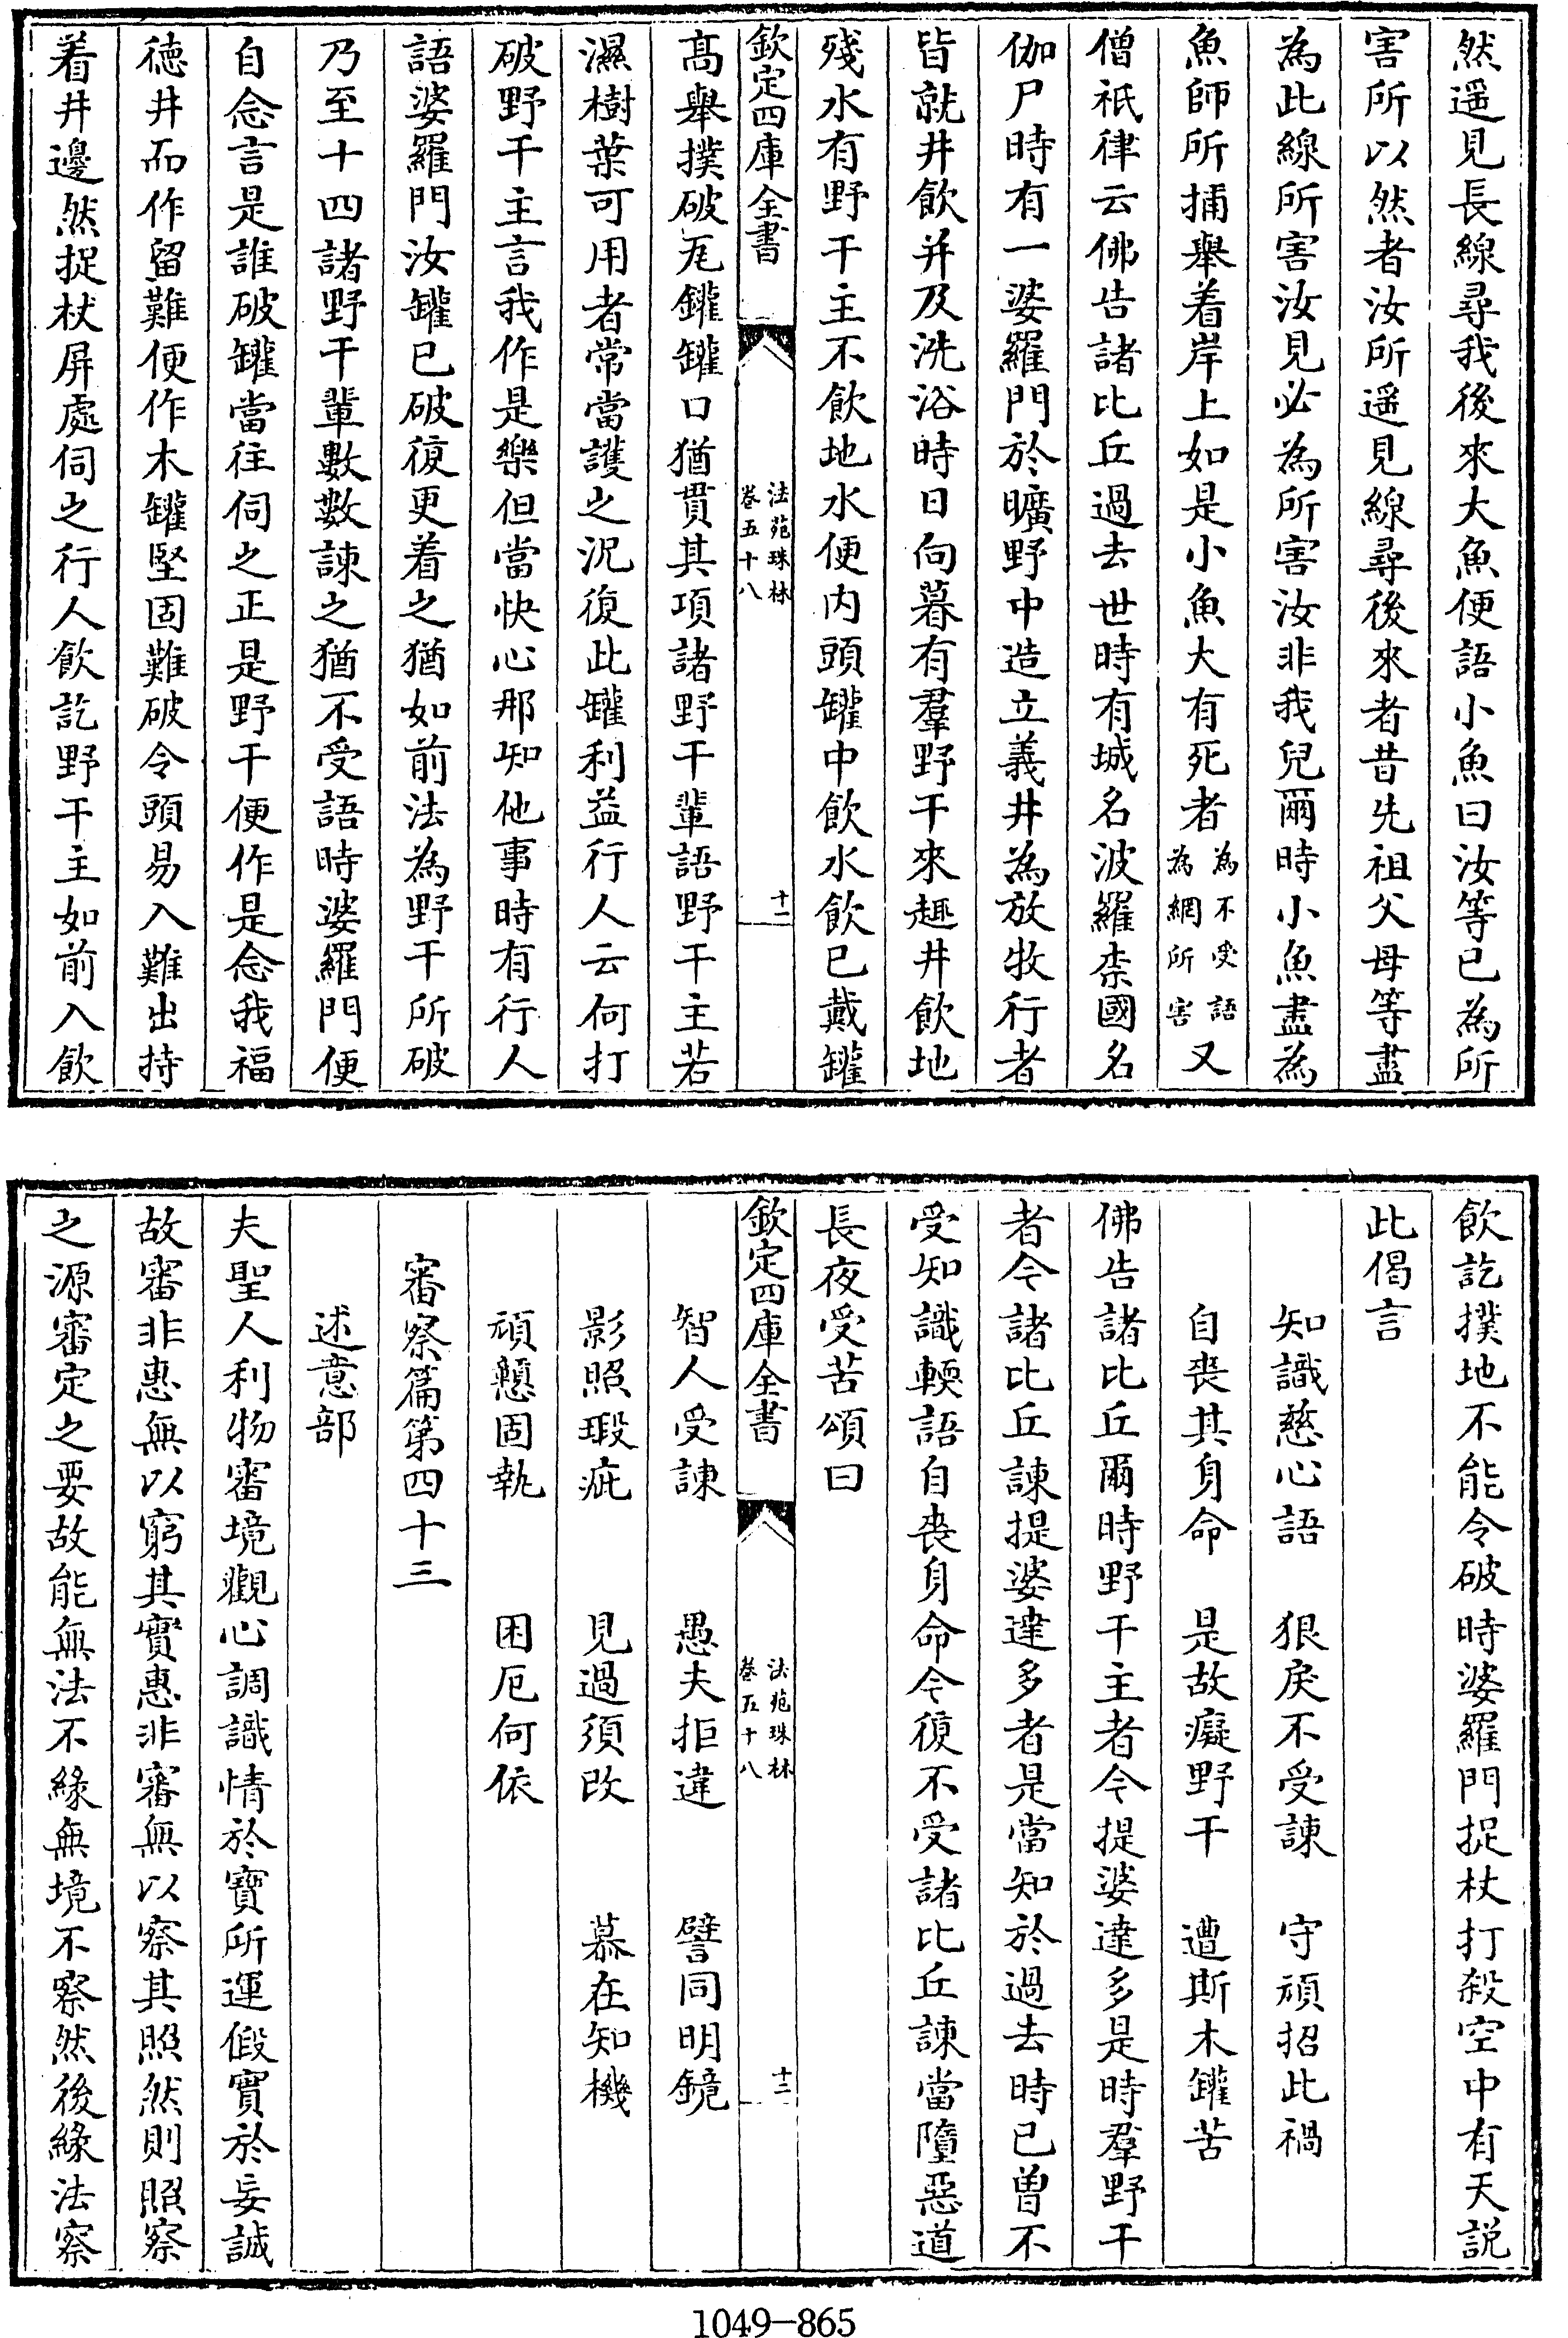 然遥見長線尋我後來大魚便語小魚曰汝等已為所
害所以然者汝所遥見線尋後來者昔先祖父母等盡
為此線所害汝見必為所害汝非我兒爾時小魚盡為
魚師所捕舉着岸上如是小魚大有死者為不受語為網所害又
僧祇律云佛告諸比丘過去世時有城名波羅柰國名
伽尸時有一婆羅門於曠野中造立義井為放牧行者
皆就井飲并及洗浴時日向暮有羣野干來趣井飲地
殘水有野干主不飲地水便内頭罐中飲水飲已戴罐
欽定四庫全書
法苑珠林
卷五十八
十二
髙舉撲破瓦罐罐口猶貫其項諸野干輩語野干主若
濕樹葉可用者常當䕶之況復此罐利益行人云何打
破野干主言我作是樂但當快心那知他事時有行人
語婆羅門汝罐已破復更着之猶如前法為野干所破
乃至十四諸野干輩數數諫之猶不受語時婆羅門便
自念言是誰破罐當往伺之正是野干便作是念我福
徳井而作留難便作木罐堅固難破令頭易入難出持
着井邊然捉杖屏處伺之行人飲訖野干主如前入飲
飲訖撲地不能令破時婆羅門捉杖打殺空中有天説
此偈言
知識慈心語　狠戾不受諫　守頑招此禍
自喪其身命　是故癡野干　遭斯木罐苦
佛告諸比丘爾時野干主者今提婆達多是時羣野干
者今諸比丘諫提婆達多者是當知於過去時已曾不
受知識輭語自喪身命今復不受諸比丘諫當墮惡道
長夜受苦頌曰
欽定四庫全書
法苑珠林
卷五十八
十二
智人受諫　愚夫拒違　譬同明鏡
影照瑕疵　見過須改　慕在知機
頑戅固執　困厄何依
審察篇第四十三
述意部
夫聖人利物審境觀心調識情於寶所運假實於妄誠
故審非惠無以窮其實惠非審無以察其照然則照察
之源審定之要故能無法不緣無境不察然後緣法察
1049-865